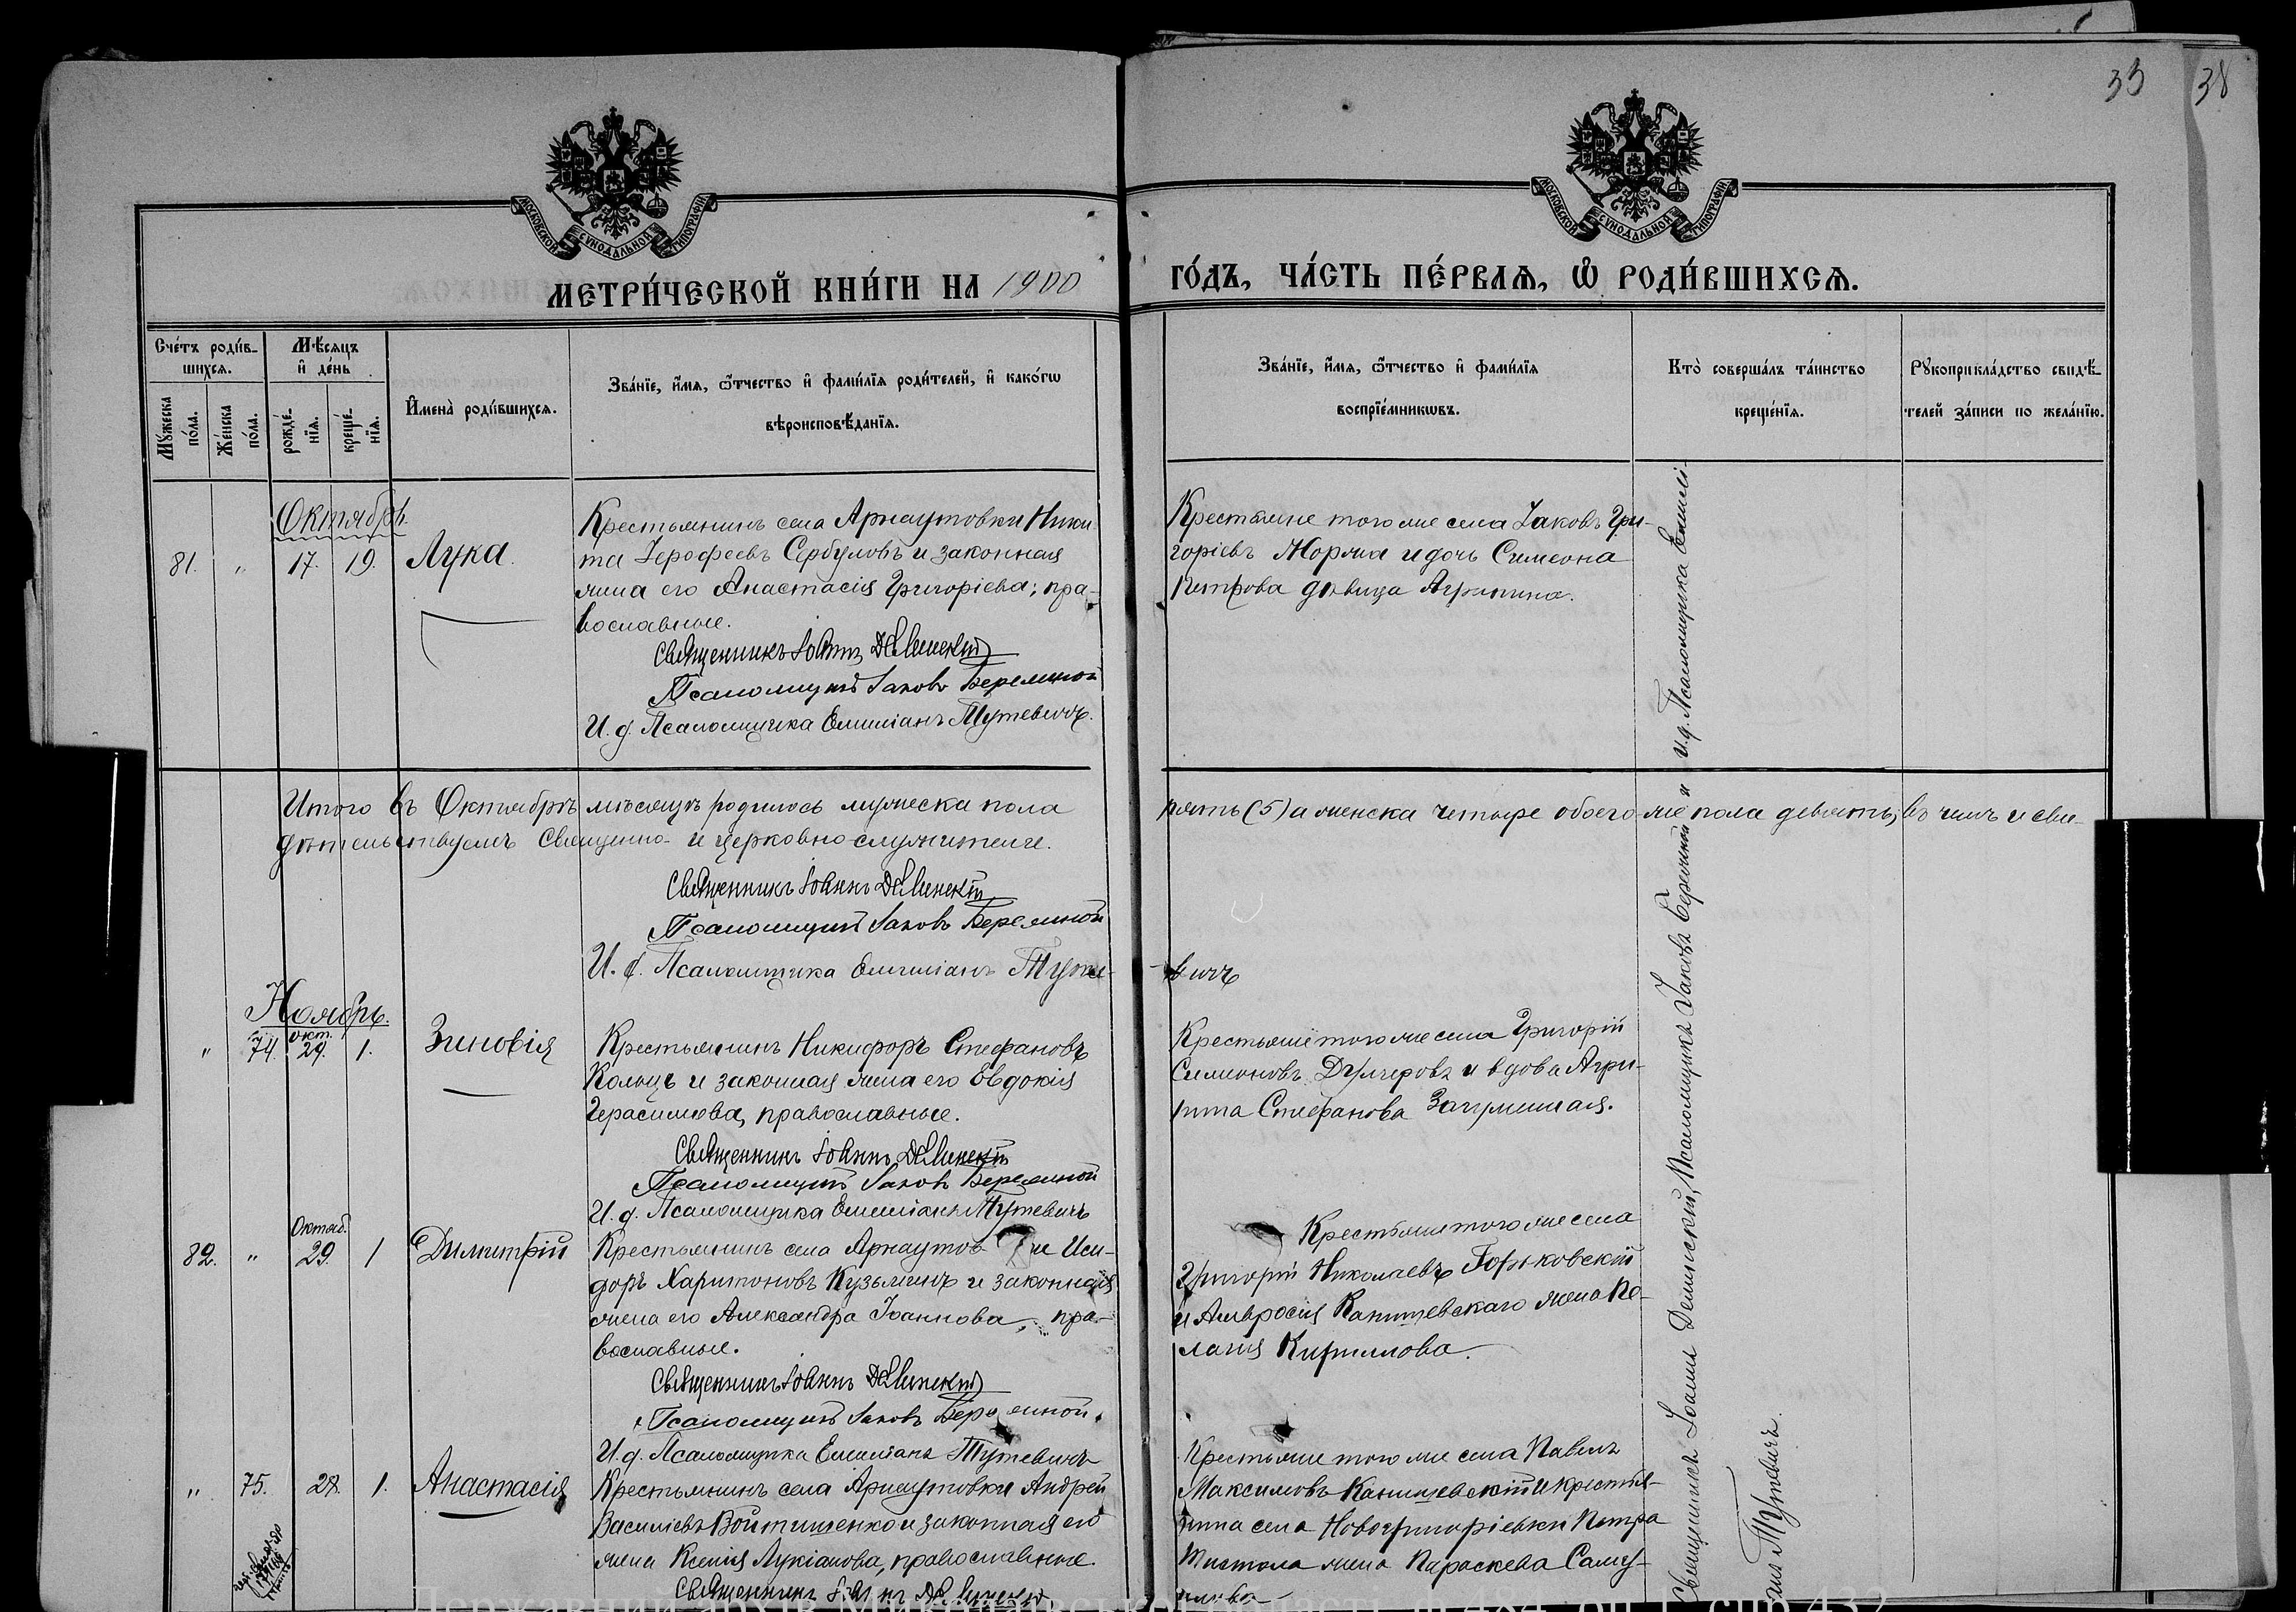 33 38
МОСКОВСКОЙ СѴНОДАЛЬНОЙ ТИПОГРАФІИ
МОСКОВСКОЙ СѴНОДАЛЬНОЙ ТИПОГРАФІИ
МЕТРИ́ЧЕСКОЙ КНИ́ГИ НА 1900
ГО́ДЪ, ЧА́СТЬ ПЕ́РВАѦ, Ѡ҆ РОДИ́ВШИХСѦ.
Сче́тъ роди́в-
шихсѧ.
Мѣ́сѧцъ
и҆ де́нь
Мꙋ́жеска
по́ла.
Же́нска
по́ла.
рожде́-
нїѧ.
креще́-
нїѧ.
И҆мена̀ роди́вшихсѧ.
Зва́нїе, и҆́мѧ, ѻ҆́тчество и҆ фами́лїѧ роди́телей, и҆ како́гѡ
вѣроисповѣ́данїѧ.
Зва́нїе, и҆́мѧ, ѻ҆́тчество и҆ фами́лїѧ
воспрїе́мникѡвъ.
Кто̀ соверша́лъ та́инство
креще́нїѧ.
Рꙋкоприкла́дство свидѣ́-
телей за́писи по жела́нїю.
Октябрь
81. " 17. 19. Лука.
Крестьянинъ села Арнаутовки Ники
та Іерофеевъ Сербуловъ и законная
жена его Анастасія Григоріева; пра-
вославные.
Священникъ Іоаннъ Делинскій
Псаломщикъ Іаковъ Бережной
И. д. Псаломщика Емиліанъ Тутевичъ.
Крестьяне того же села Іаковъ Гри-
горіевъ Моржа и дочь Симеона
Петрова дѣвица Агрипина.
Итого въ Октябрѣ мѣсяцѣ родилось мужеска пола
пять (5) а женска четыре обоего же пола девять, въ чемъ и сви-
дѣтельствуемъ Священно- и церковно-служители.
Священникъ Іоаннъ Делинскій
Псаломщикъ Іаковъ Бережной
И. д. Псаломщика Емиліанъ Туте-
вичъ
Ноябрь.
окт.
" 74. 29. 1. Зиновія
Крестьянинъ Никифоръ Стефановъ
Колецъ и законная жена его Евдокія
Герасимова, православные.
Священникъ Іоаннъ Делинскій
Псаломщикъ Іаковъ Бережной
И. д. Псаломщика Емиліанъ Тутевичъ
Крестьяне того же села Григорій
Симеоновъ Дулгеровъ и вдова Агри-
пина Стефанова
Октяб.
82. " 29. 1 Димитрій
Крестьянинъ села Арнаутов ки Иси-
доръ Харитоновъ Кузьминъ и законная
жена его Александра Іоаннова, пра-
вославные.
Священникъ Іоаннъ Делинскій
Псаломщикъ Іаковъ Бережной.
И. д. Псаломщика Емиліанъ Тутевичъ
Крестьяне того же села
Григорій Николаевъ Горьковскій
и Амвросія Канишевскаго жена Пе-
лагія Кирилова.
" 75. 28. 1. Анастасія
Крестьянинъ села Арнаутовки Андрей
Василіевъ Войтишенко и законная его
жена Ксенія Лукіанова, православные.
Священникъ Іоаннъ Делинскій
Крестьяне того же села Павелъ
Максимовъ Канишевскій и крестья-
нина села Новогригоріевки Петра
жена Параскева Саму-
илова
Священникъ Іоаннъ Делинскій, Псаломщикъ Іаковъ Бережной и И. д. Псаломщика Емилі-
анъ Тутевичъ.
Державний архів Миколаївської області ф. 484, оп. 1, спр. 432